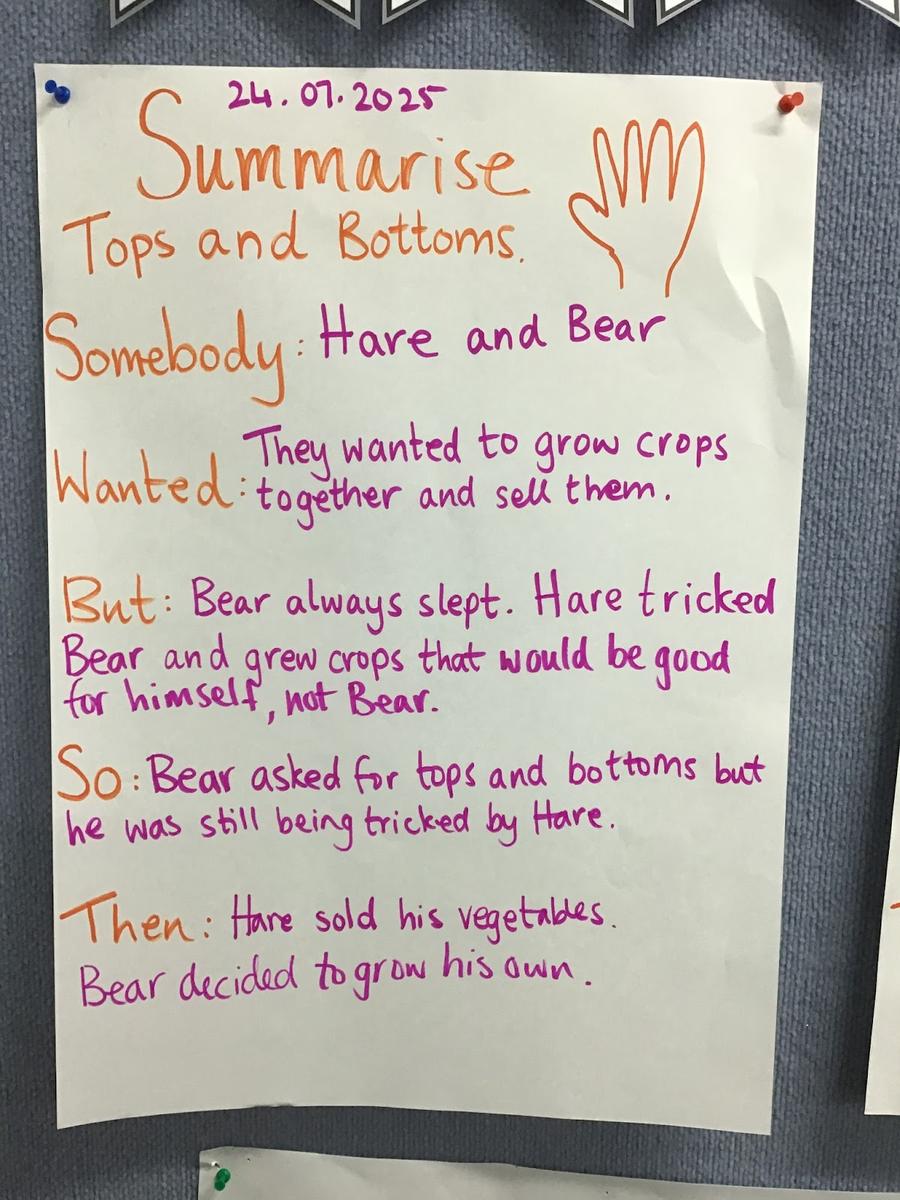 24.07.2025
Summarise
Tops and Bottoms.
Somebody: Hare and Bear
Wanted: They wanted to grow crops
together and sell them.
But: Bear always slept. Hare tricked
Bear and grew crops that would be good
for himself, not Bear.
So: Bear asked for tops and bottoms but
he was still being tricked by Hare.
Then: Hare sold his vegetables.
Bear decided to grow his own.